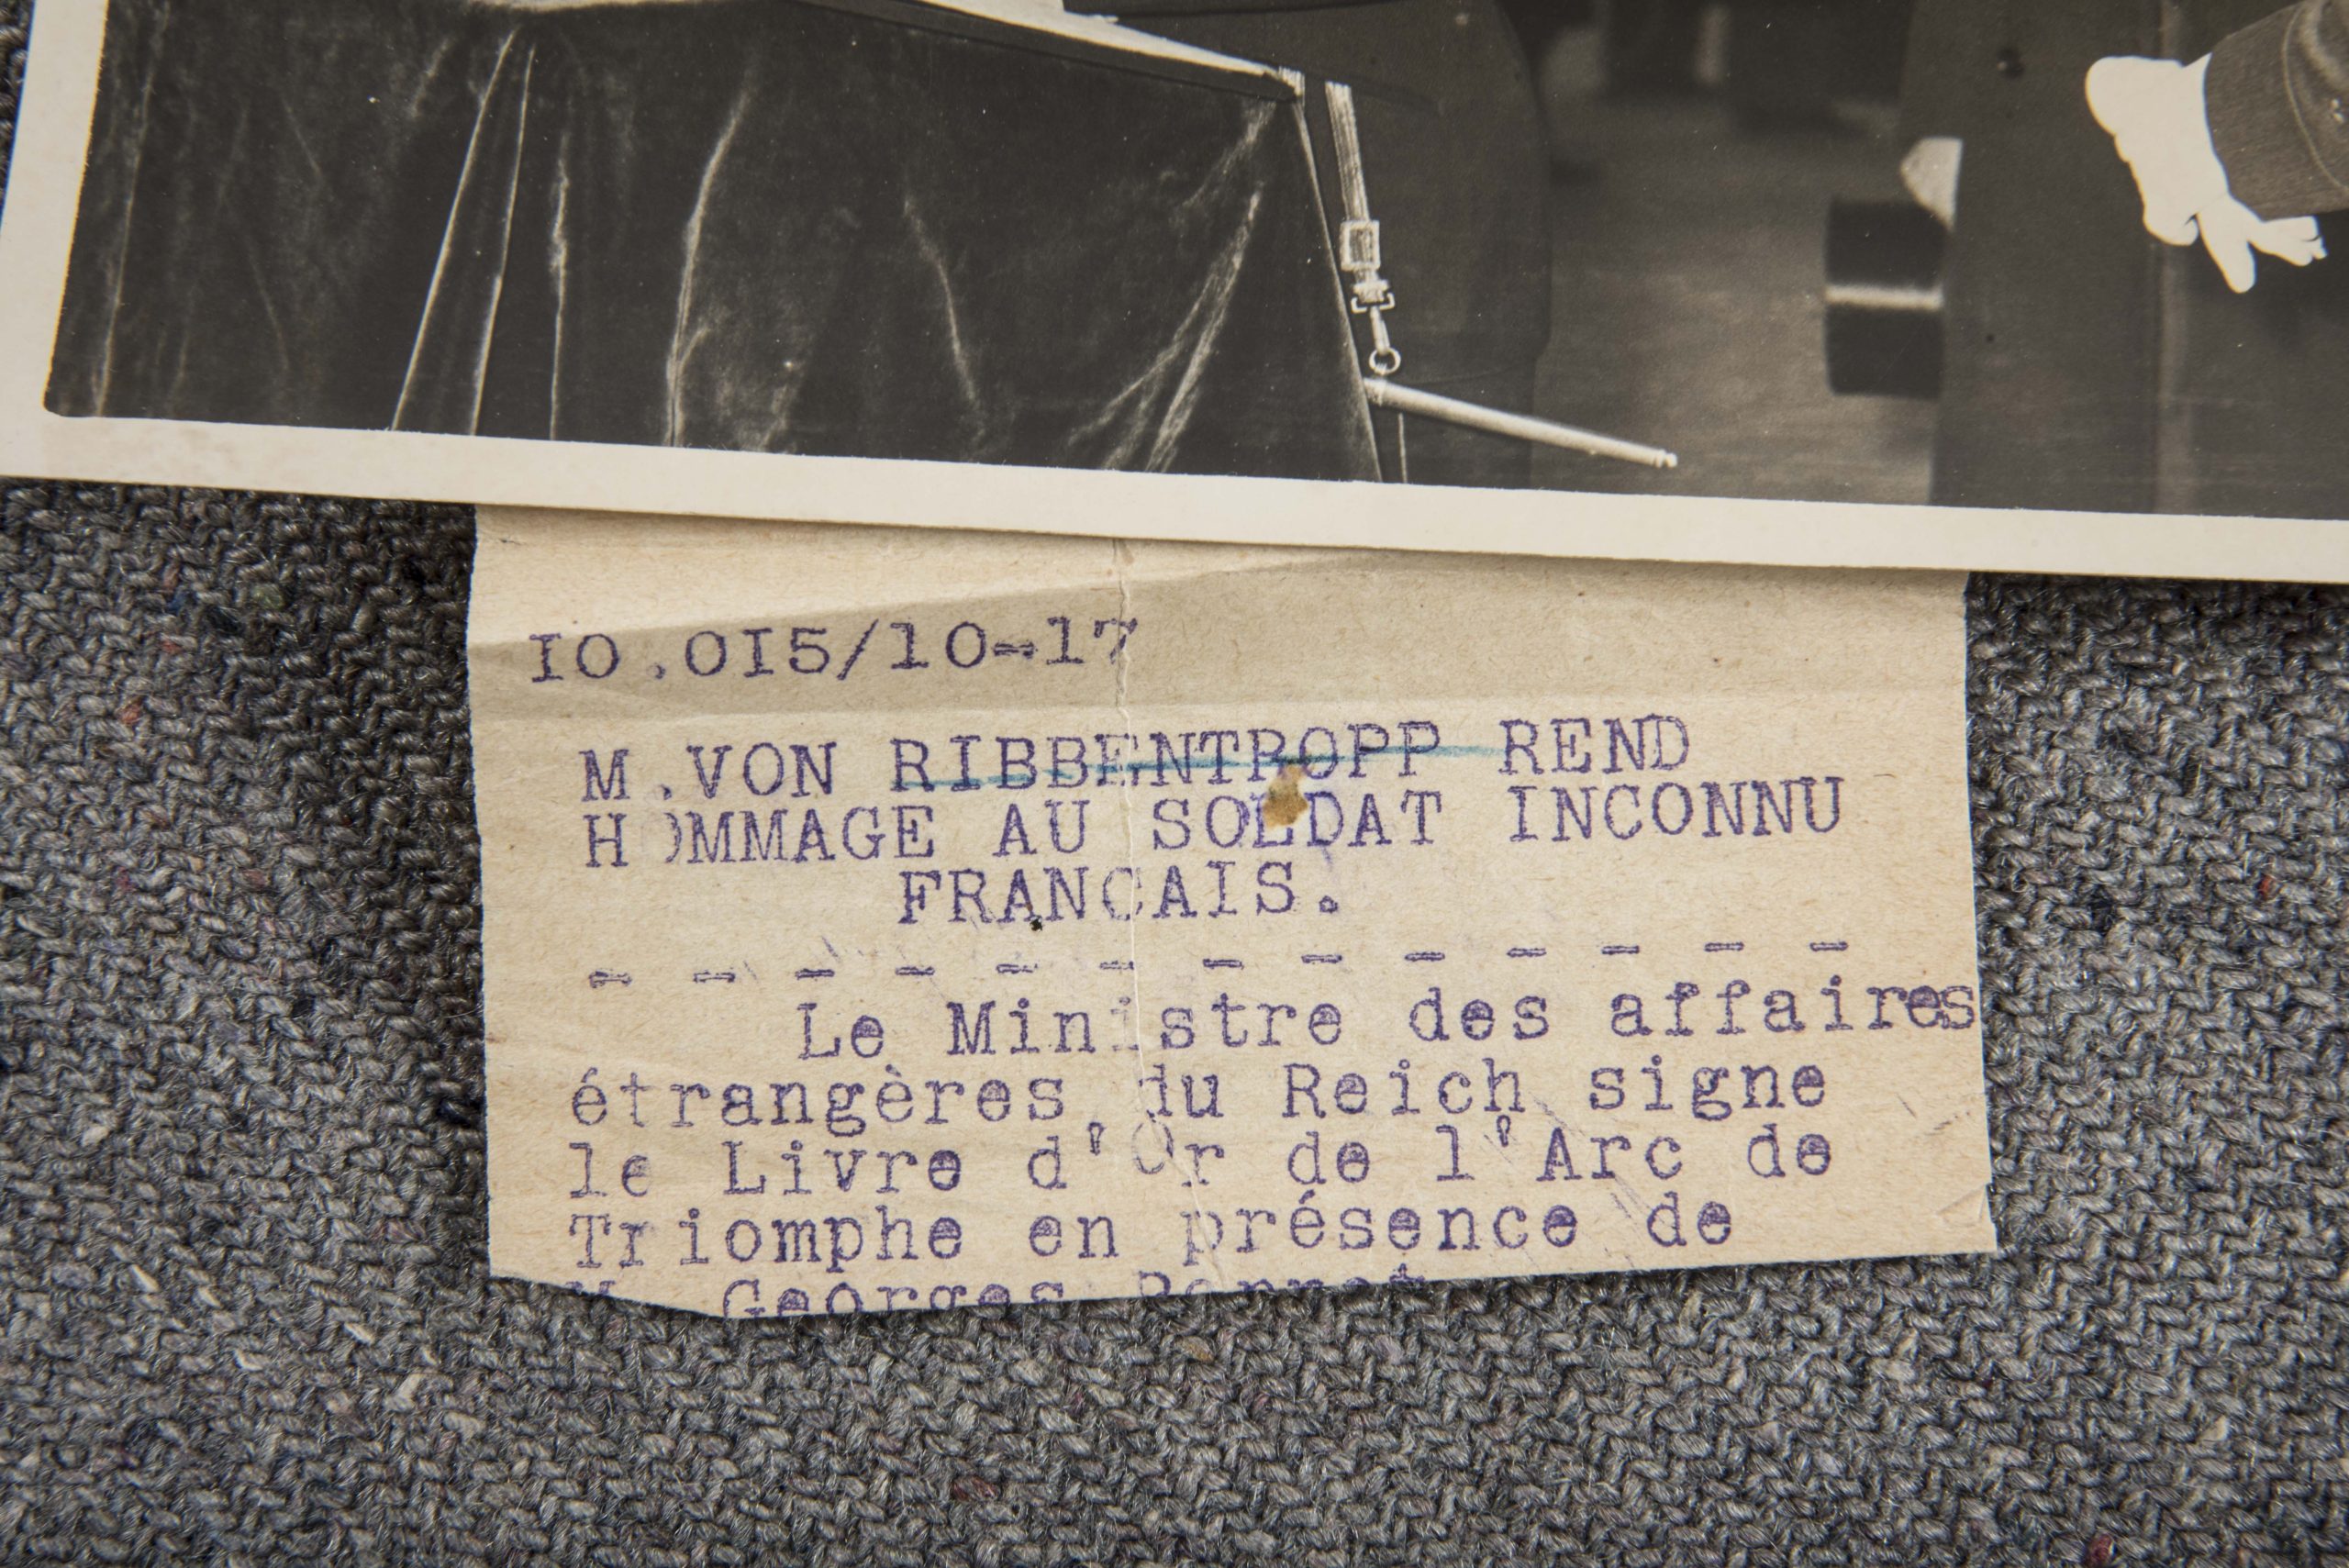 IO.OI5/10-17
M.VON RIBBENTROPP REND
HOMMAGE AU SOLDAT INCONNU
FRANCAIS.
- - - - - - - - - - - - -
Le Ministre des affaires
étrangères du Reich signe
le Livre d'Or de l'Arc de
Triomphe en présence de
M. Georges Bonnet